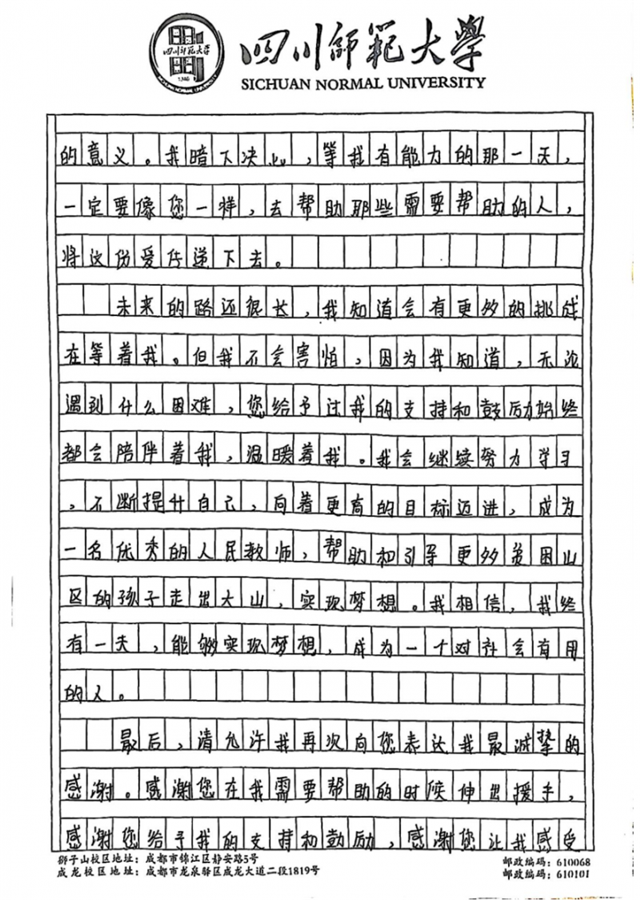 四川师范大学
SICHUAN NORMAL UNIVERSITY
的意义。我暗下决心，等我有能力的那一天，
一定要像您一样，去帮助那些需要帮助的人，
将这份爱传递下去。
未来的路还很长，我知道会有更多的挑战
在等着我。但我不会害怕，因为我知道，无论
遇到什么困难，您给予过我的支持和鼓励始终
都会陪伴着我，温暖着我。我会继续努力学习
，不断提升自己，向着更高的目标迈进，成为
一名优秀的人民教师，帮助和引导更多贫困山
区的孩子走出大山，实现梦想。我相信，我终
有一天，能够实现梦想，成为一个对社会有用
的人。
最后，请允许我再次向您表达我最诚挚的
感谢。感谢您在我需要帮助的时候伸出援手，
感谢您给予我的支持和鼓励，感谢您让我感受
狮子山校区地址：成都市锦江区静安路5号
邮政编码：610068
成龙校区地址：成都市龙泉驿区成龙大道二段1819号
邮政编码：610101